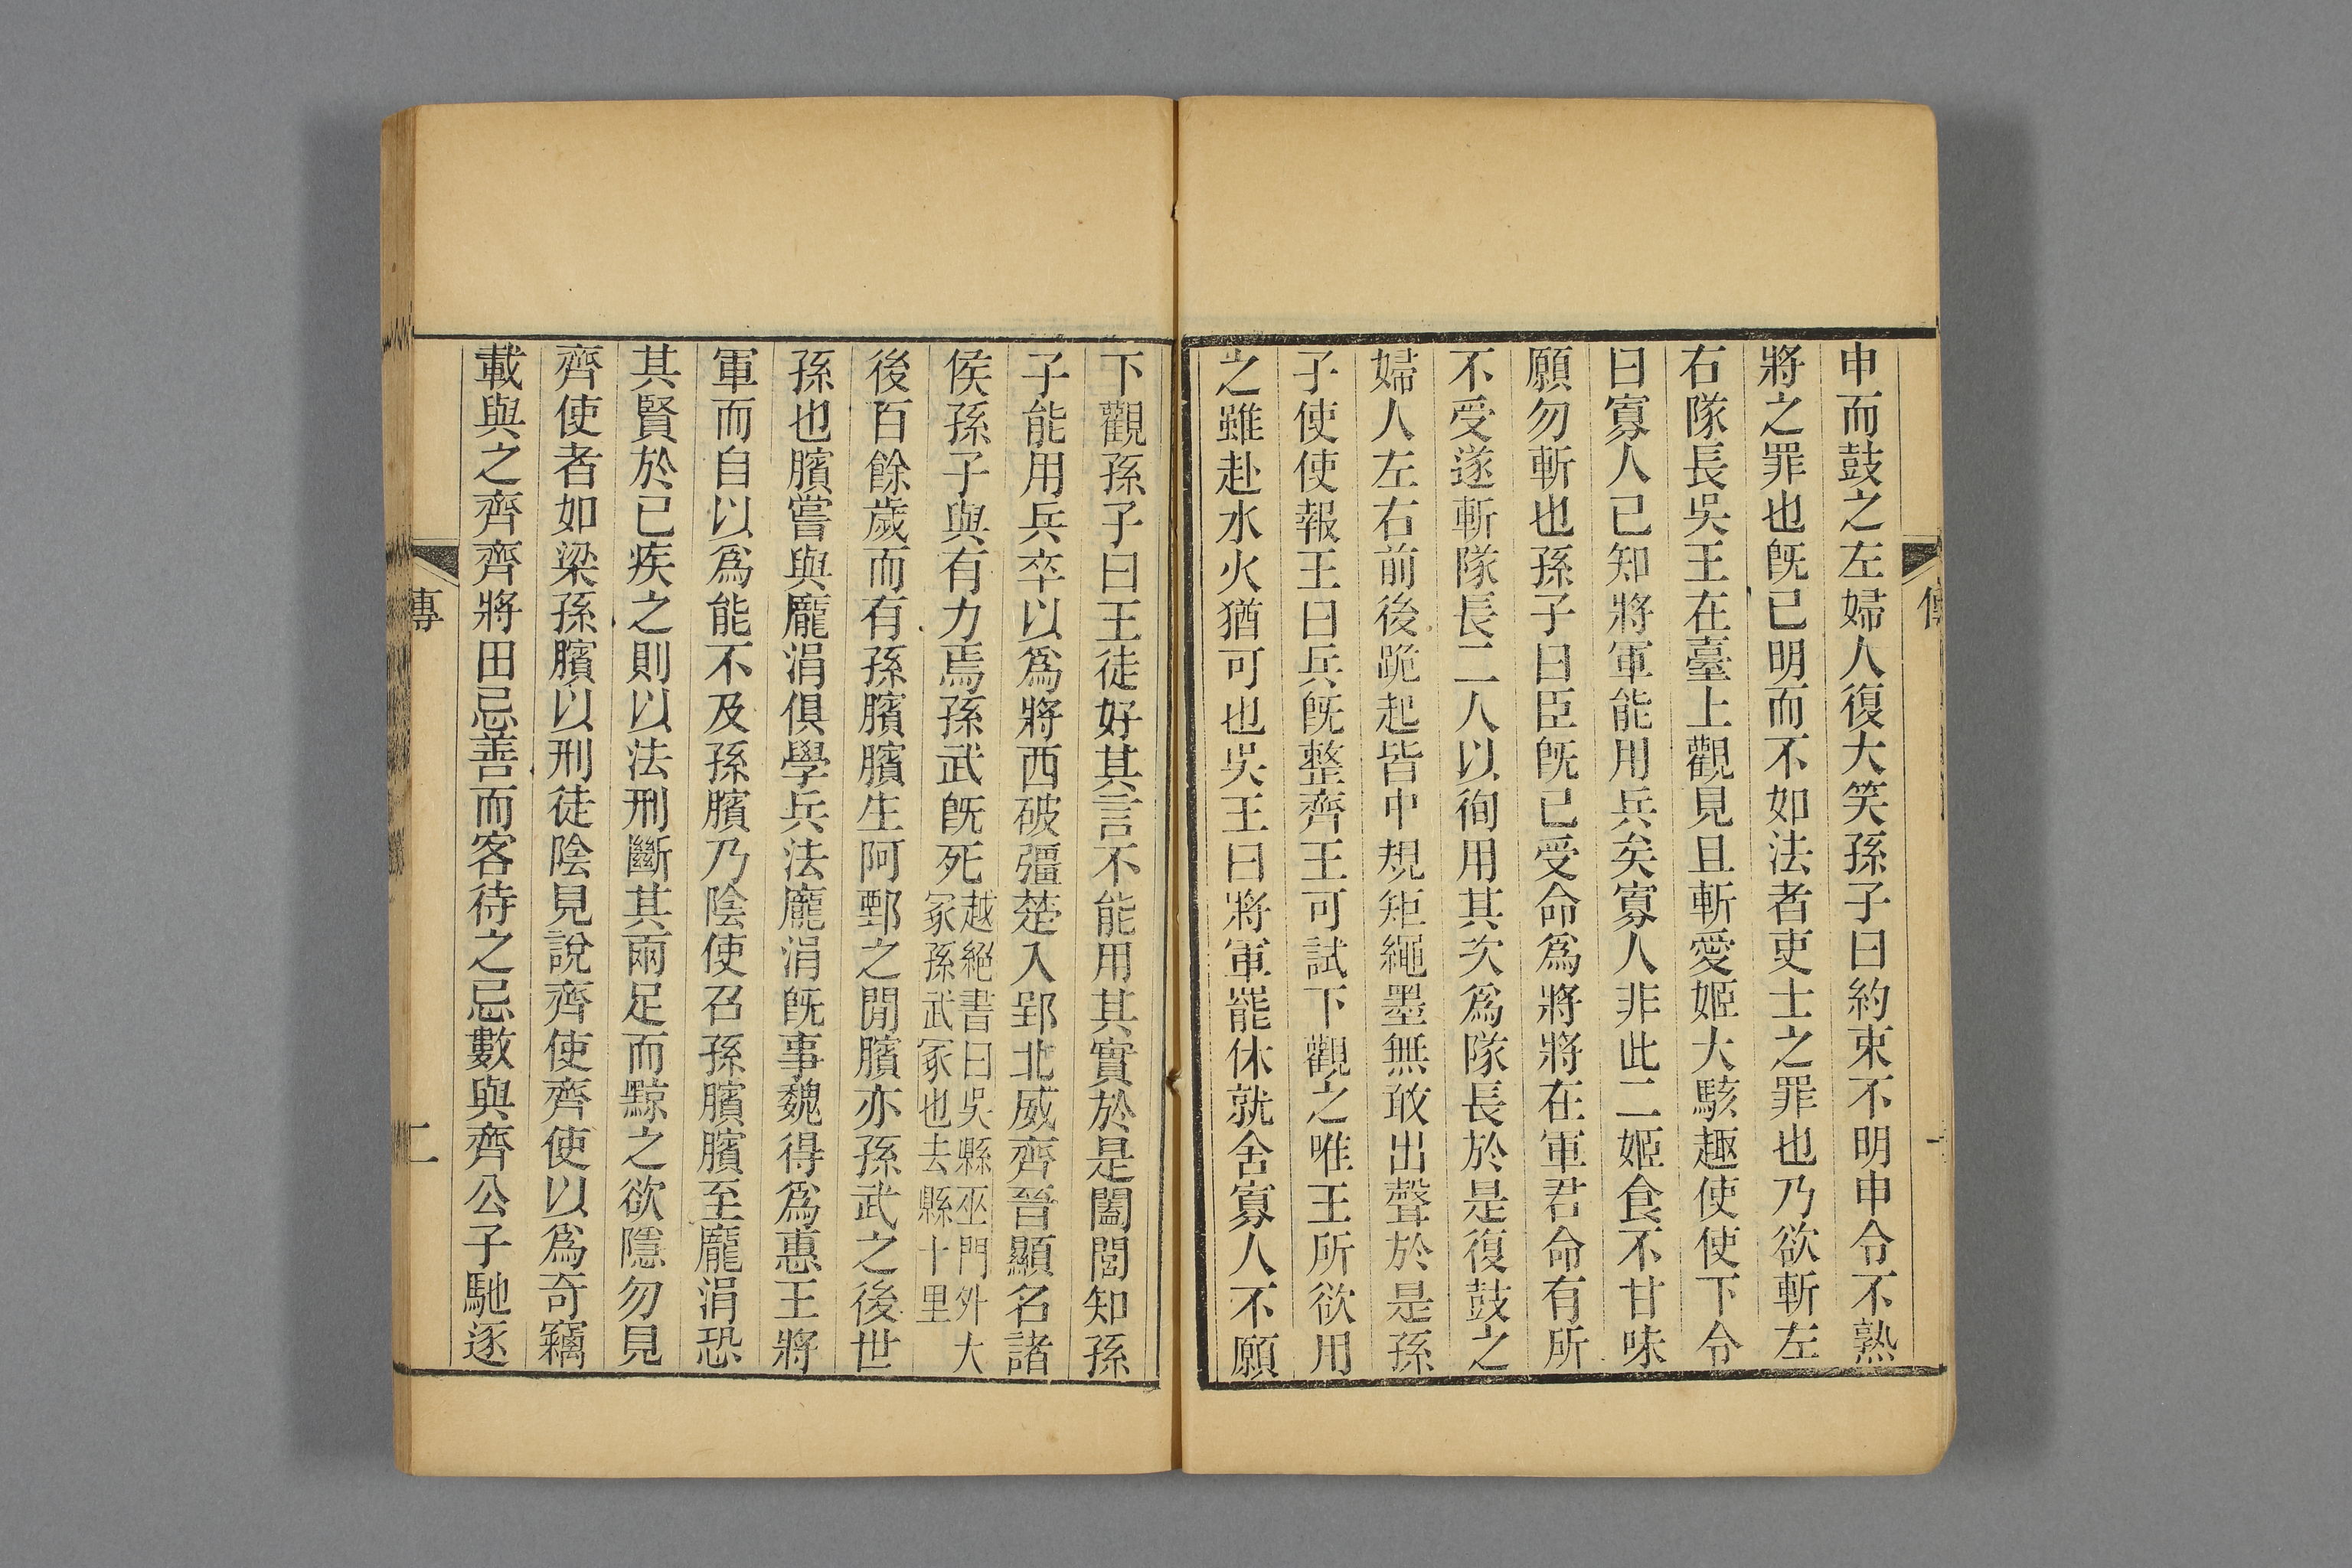 申而鼓之左婦人復大笑孫子曰約束不明申令不熟
將之罪也旣已明而不如法者吏士之罪也乃欲斬左
右隊長吳王在臺上觀見且斬愛姬大駭趣使使下令
曰寡人已知將軍能用兵矣寡人非此二姬食不甘味
願勿斬也孫子曰臣旣已受命爲將將在軍君命有所
不受遂斬隊長二人以徇用其次爲隊長於是復鼓之
婦人左右前後跪起皆中規矩繩墨無敢出聲於是孫
子使使報王曰兵旣整齊王可試下觀之唯王所欲用
之雖赴水火猶可也吳王曰將軍罷休就舍寡人不願
下觀孫子曰王徒好其言不能用其實於是闔閭知孫
子能用兵卒以爲將西破彊楚入郢北威齊晉顯名諸
侯孫子與有力焉孫武旣死越絕書曰吳縣巫門外大
冢孫武冢也去縣十里
後百餘歲而有孫臏臏生阿鄄之閒臏亦孫武之後世
孫也臏嘗與龐涓俱學兵法龐涓旣事魏得爲惠王將
軍而自以爲能不及孫臏乃陰使召孫臏臏至龐涓恐
其賢於己疾之則以法刑斷其兩足而黥之欲隱勿見
齊使者如梁孫臏以刑徒陰見說齊使齊使以爲奇竊
載與之齊齊將田忌善而客待之忌數與齊公子馳逐
傳
二